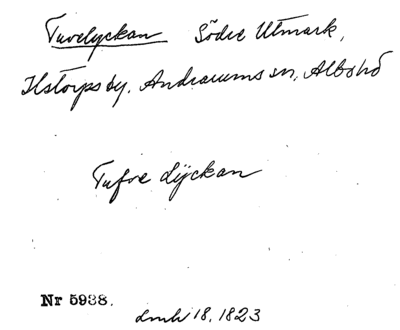 Tuvelyckan Södre Utmark,
Ilstorps by, Andrarums sn, Albo hd
Tufve Lÿckan
Nr 5938.
lmh 18, 1823